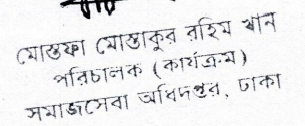 মোস্তফা মোস্তাকুর রহিম খান
পরিচালক (কার্যক্রম)
সমাজসেবা অধিদপ্তর, ঢাকা